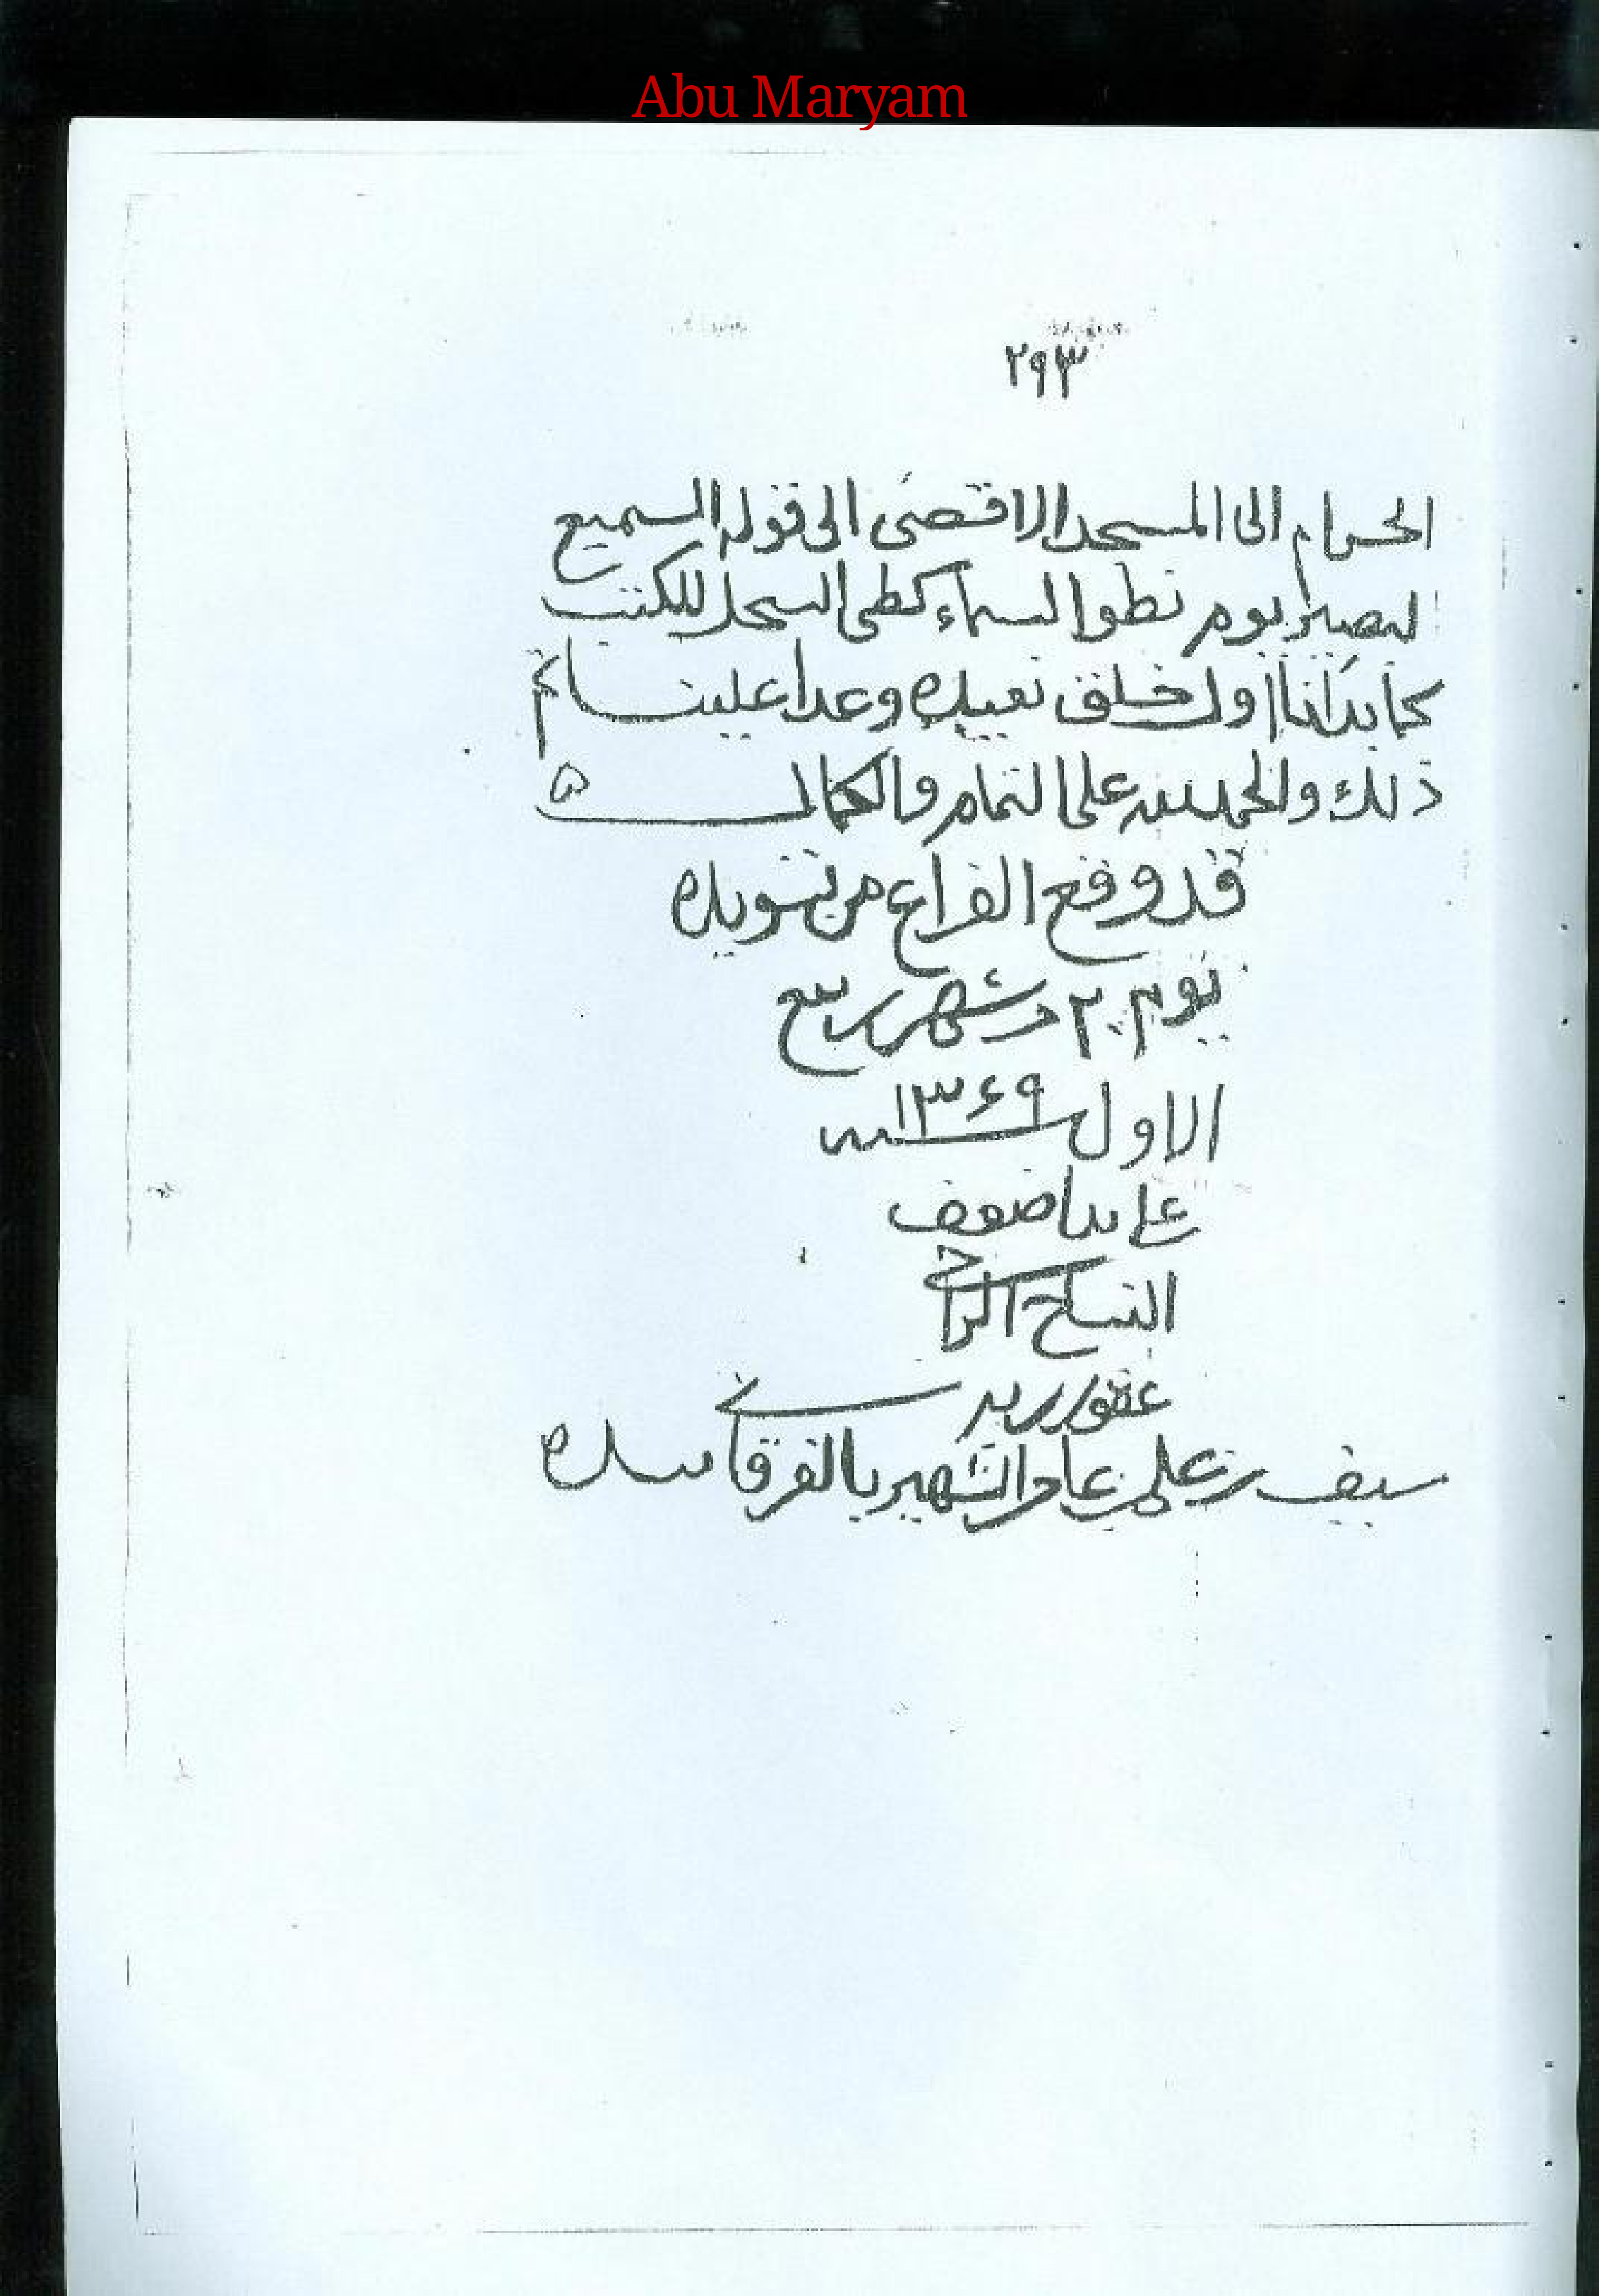 Abu Maryam
٢٩٣
الحرام الى المسجد الاقصى الى قوله السميع
لبصير يوم نطوا السماء كطى السجل للكتب
كما بدأنا اول خلق نعيده وعدا علينا تم
ذلك والحمد لله على التمام والكمال ه
قد وقع الفراغ من تسويده
يوم ٢٠ من شهر ربيع
الاول سنة ١٣٦٩
على يد اضعف
النساخ الراجي
عفو ربه
سيف بن علي بن عامر الشهير بالفرقاني بيده